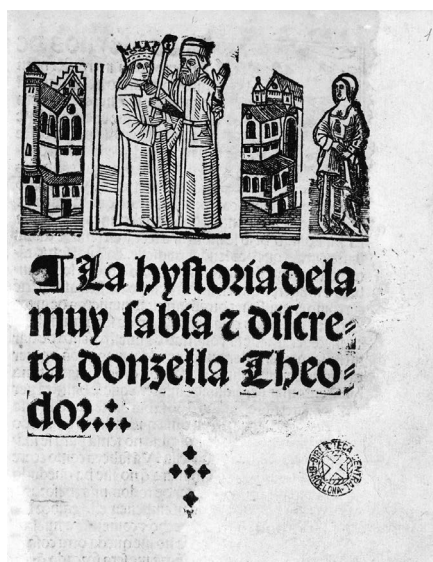 ¶ La hystoria dela
muy sabia ⁊ discre⸗
ta donzella Theo⸗
dor.
BIBLIOTECA CENTRAL
BARCELONA
1